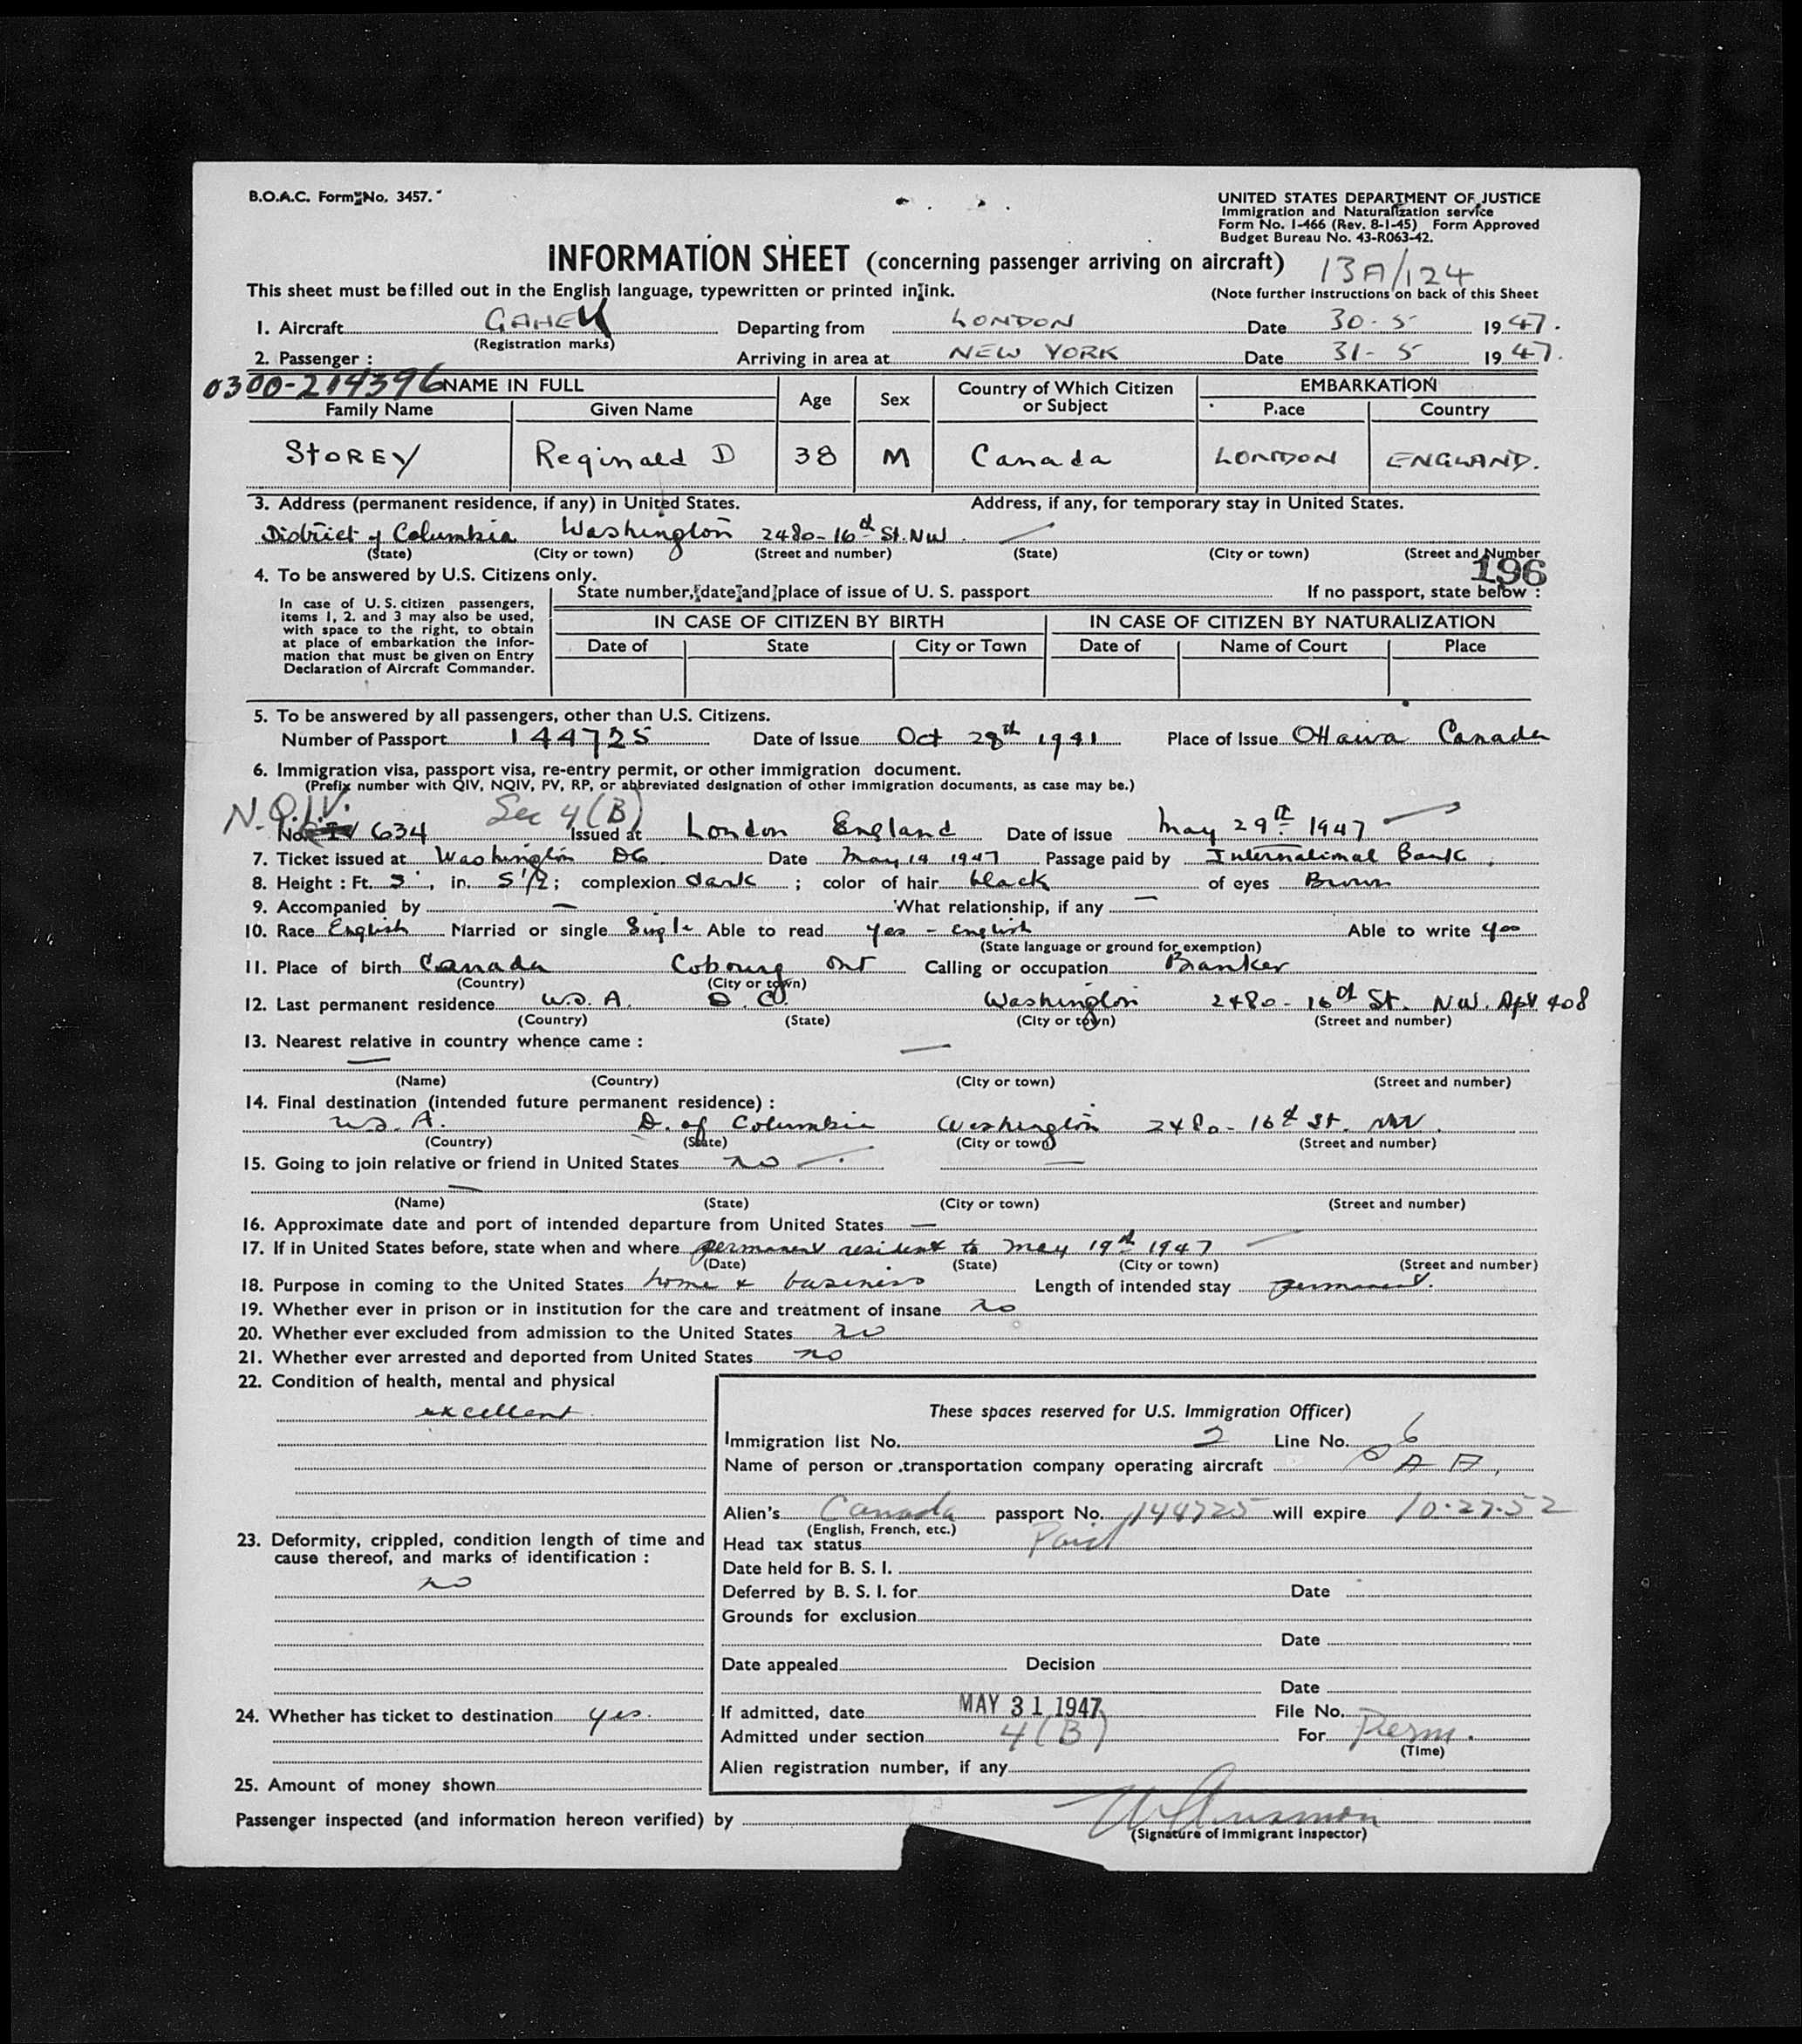 B.O.A.C. Form No. 3457.
UNITED STATES DEPARTMENT OF JUSTICE
Immigration and Naturalization service
Form No. I-466 (Rev. 8-1-45) Form Approved
Budget Bureau No. 43-R063-42.
INFORMATION SHEET (concerning passenger arriving on aircraft) 13A/124
This sheet must be filled out in the English language, typewritten or printed in ink. (Note further instructions on back of this Sheet
1. Aircraft GAHEK Departing from LONDON Date 30-5 1947.
(Registration marks)
2. Passenger : Arriving in area at NEW YORK Date 31-5 1947.
0300-214396 NAME IN FULL Age Sex Country of Which Citizen or Subject EMBARKATION
Family Name Given Name Place Country
STOREY Reginald D 38 M Canada LONDON ENGLAND.
3. Address (permanent residence, if any) in United States. Address, if any, for temporary stay in United States.
District of Columbia Washington 2480-16th St. NW.
(State) (City or town) (Street and number) (State) (City or town) (Street and Number
196
4. To be answered by U.S. Citizens only.
State number, date and place of issue of U. S. passport If no passport, state below :
In case of U. S. citizen passengers,
items 1, 2. and 3 may also be used,
with space to the right, to obtain
at place of embarkation the infor-
mation that must be given on Entry
Declaration of Aircraft Commander.
IN CASE OF CITIZEN BY BIRTH IN CASE OF CITIZEN BY NATURALIZATION
Date of State City or Town Date of Name of Court Place
5. To be answered by all passengers, other than U.S. Citizens.
Number of Passport 144725 Date of Issue Oct 28th 1941 Place of Issue Ottawa Canada
6. Immigration visa, passport visa, re-entry permit, or other immigration document.
(Prefix number with QIV, NQIV, PV, RP, or abbreviated designation of other immigration documents, as case may be.)
N.Q.I.V. Sec 4(B)
No. 634 Issued at London England Date of issue May 29th 1947
7. Ticket issued at Washington DC Date May 19 1947 Passage paid by International Bank.
8. Height : Ft. 5', in. 5 1/2; complexion dark ; color of hair black of eyes Brown
9. Accompanied by — What relationship, if any —
10. Race English Married or single Single Able to read yes - English Able to write yes
(State language or ground for exemption)
11. Place of birth Canada Cobourg Ont Calling or occupation Banker
(Country) (City or town)
12. Last permanent residence U.S.A. D.C. Washington 2480-16th St. NW. Apt 408
(Country) (State) (City or town) (Street and number)
13. Nearest relative in country whence came :
(Name) (Country) (City or town) (Street and number)
14. Final destination (intended future permanent residence) :
U.S.A. D. of Columbia Washington 2480-16th St. NW.
(Country) (State) (City or town) (Street and number)
15. Going to join relative or friend in United States no
(Name) (State) (City or town) (Street and number)
16. Approximate date and port of intended departure from United States —
17. If in United States before, state when and where permanent resident to May 19th 1947
(Date) (State) (City or town) (Street and number)
18. Purpose in coming to the United States home & business Length of intended stay permanent.
19. Whether ever in prison or in institution for the care and treatment of insane no
20. Whether ever excluded from admission to the United States no
21. Whether ever arrested and deported from United States no
22. Condition of health, mental and physical
excellent
23. Deformity, crippled, condition length of time and
cause thereof, and marks of identification :
no
24. Whether has ticket to destination yes.
25. Amount of money shown
These spaces reserved for U.S. Immigration Officer)
Immigration list No. 2 Line No. 6
Name of person or transportation company operating aircraft P A A.
Alien's Canada passport No. 144725 will expire 10-27-52
(English, French, etc.)
Head tax status Paid
Date held for B. S. I.
Deferred by B. S. I. for Date
Grounds for exclusion
Date
Date appealed Decision
Date
If admitted, date MAY 31 1947 File No.
Admitted under section 4(B) For Perm.
(Time)
Alien registration number, if any
Passenger inspected (and information hereon verified) by
(Signature of Immigrant Inspector)